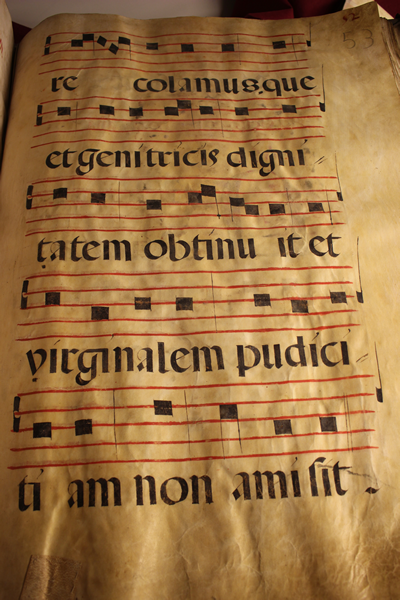 53
re colamus.que
et genitricis digni
tatem obtinu it et
virginalem pudici
ti am non amisit